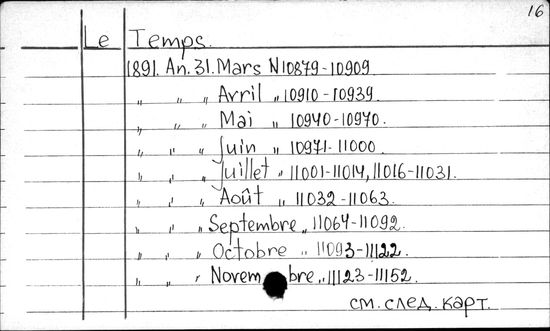 16
Le Temps.
1891. An. 31. Mars N10879-10909
„ „ „ Avril „ 10910-10939.
„ „ „ Mai „ 10940-10970.
„ „ „ Juin „ 10971-11000.
„ „ „ Juillet „ 11001-11014, 11016-11031.
„ „ „ Août „ 11032-11063.
„ „ „ Septembre „ 11064-11092.
„ „ „ Octobre „ 11093-11122.
„ „ „ Novembre „ 11123-11152.
см. след. карт.